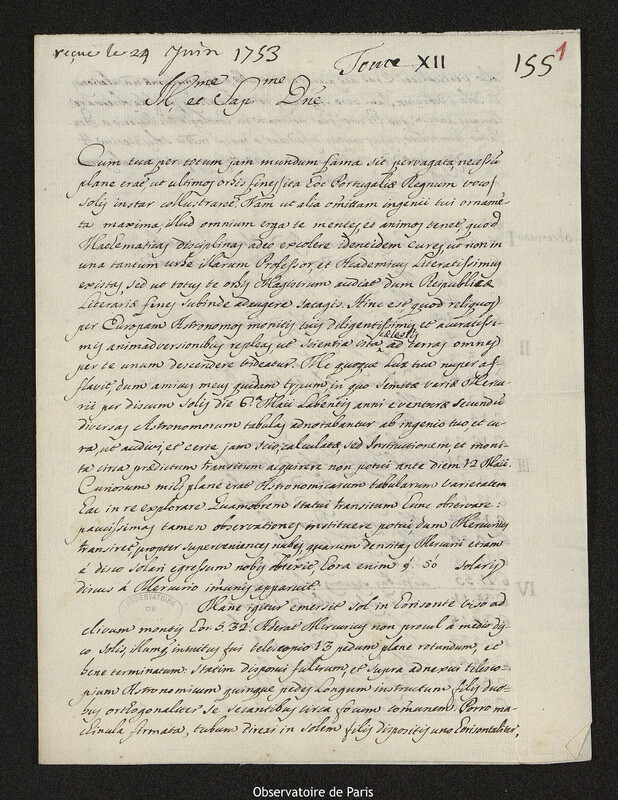 reçue le 24 Juin 1753
Tome XII
155 1
Ill.me et Sap.me Dñe
Cum tua per totum jam mundum fama sit pervagata, necessũ
plane erat, ut ultimos orbis fines ita hoc Portugaliæ Regnum veros
solis instar collustraret. Tam ut alia omittam ingenii tui ornamẽ-
ta maxima, illud omnium erga te mentes, et animos tenet, quod
Mathematicas disciplinas adeo excolere identidem cures, ut non in
una tantum urbe illarum Professor, et Academicus Literatissimus
existas, sed ut totus te orbis Magistrum audiat dum Reipublicæ
Literariæ fines subinde adaugere satagis. Hinc est, quod reliquos
per Europam Astronomos monitis tuis diligentissimis, et accuratissi-
mis animadversionibus repleas, ut scientia ista cælestis ad terras omnes
per te unum descendere videatur. Me quoque Lux tua nuper af-
flavit, dum amicus meus quidem typum, in quo semitæ variæ Mercu-
rii per discum Solis die 6.ª Maii Labentis anni eventuræ secundũ
diversas Astronomorum tabulas adnotabantur ab ingenio tuo et cu-
ra, ut audivi, et certe jam scio, calculatæ, sed Instructionem, et moni-
ta circa prædictum transitum acquirere non potui ante diem 12 Maii.
Curiosum mihi plane erat Astronomicarum tabularum varietatem
hac in re explorare. Quamobrem statui transitum hunc observare:
paucissimas tamen observationes instituere potui dum Mercurius
transiret, propter supervenientes nubes, quarum densitas Mercurii etiam
à disco solari egressum nobis obtexit, hora enim 9. 50 solaris
discus à Mercurio imunis apparuit.
OBSERVATOIRE DE
Mane igitur emersit sol in horisonte viso ad
clivum montis hor. 5. 32. Aderat Mercurius non procul à medio dis-
co solis, illumq intuitus fui telescopio 13 pedum plane rotundum, et
bene terminatum: statim disposui fulcrum, et supra adnexui telesco-
pium Astronomicum quinque pedes longum instructum filis duo-
bus orthogonaliter se secantibus circa focum comunem. Porro ma-
chinula firmata, tubum direxi in solem filis dispositis uno horisontaliter,
Observatoire de Paris